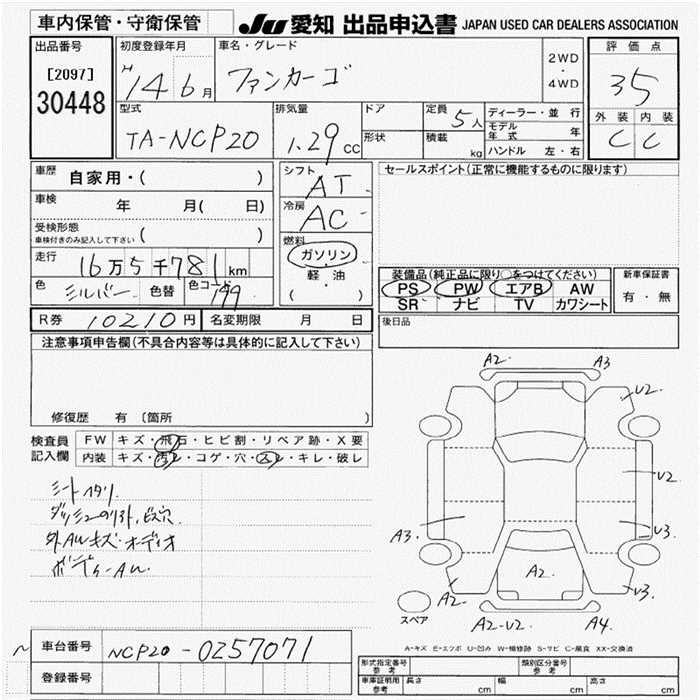 車内保管・守衛保管
JU 愛知 出品申込書 JAPAN USED CAR DEALERS ASSOCIATION
出品番号
[2097]
30448
初度登録年月
H 14 年 6 月
車名・グレード
ファンカーゴ
2WD
・
4WD
評価点
3.5
外装 内装
C C
型式
TA-NCP20
排気量
1.29 CC
ドア
形状
定員 5人
積載 kg
ディーラー・並行
モデル年式 年
ハンドル 左・右
車歴 自家用・( )
車検 年 月( 日)
受検形態
車検付きのみ記入して下さい ( )
走行 16万5千781km
色 シルバー 色替 色コード 199
シフト AT
冷房 AC
燃料
ガソリン
軽・油
( )
セールスポイント(正常に機能するものに限ります)
装備品(純正品に限り○をつけてください)
PS PW エアB AW
SR ナビ TV カワシート
新車保証書
有・無
R券 10210円 名変期限 月 日
後日品
注意事項申告欄(不具合内容等は具体的に記入して下さい)
修復歴 有 〔箇所 〕
検査員記入欄
FW キズ・飛石・ヒビ割・リペア跡・X要
内装 キズ・汚レ・コゲ・穴・スレ・キレ・破レ
シートヘタリ
外AWキズ・オーディオ
A2. A3
U2.
U2
A3. U3
A2. A2 U3.
A2-U2. A4.
スペア
A-キズ E-エクボ U-凹み W-補修跡 S-サビ C-腐食 XX-交換済
車台番号 NCP20-0257071
登録番号
形式指定番号 参考 類別区分番号 参考
車庫証明用 参考 長さ cm 幅 cm 高さ cm